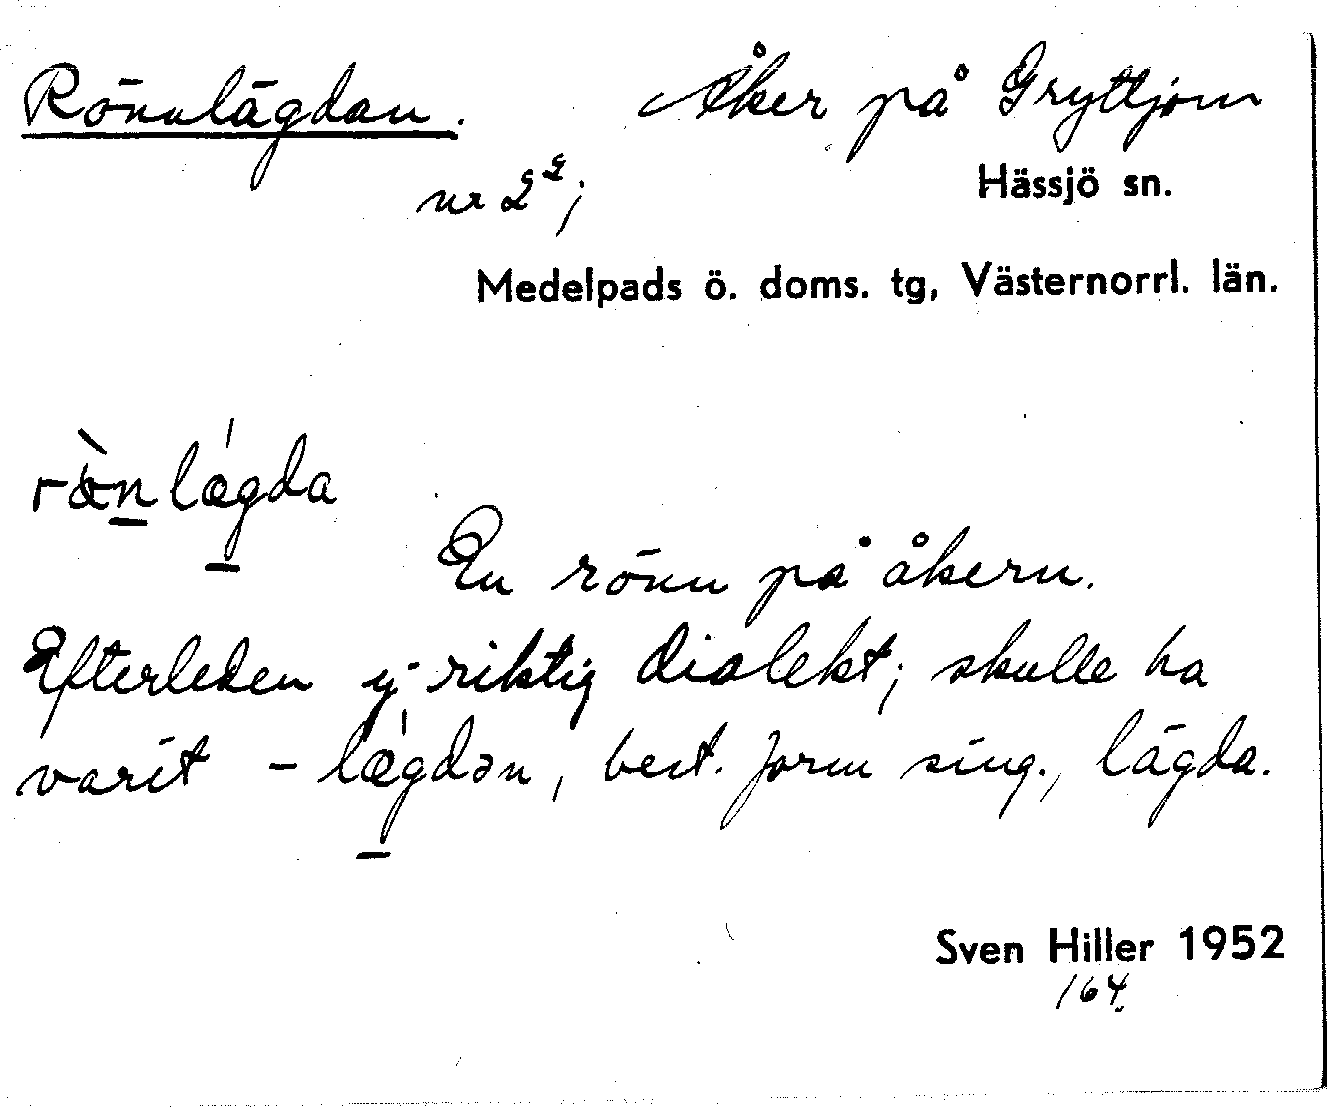 Rönnlägdan. Åker på Gryttjom
nr 2²; Hässjö sn.
Medelpads ö. doms. tg, Västernorrl. län.
rœ̀nlǽgda
En rönn på åkern.
Efterleden ej riktig dialekt; skulle ha
varit – lǽgdən, best. form sing., lägda.
Sven Hiller 1952
164.